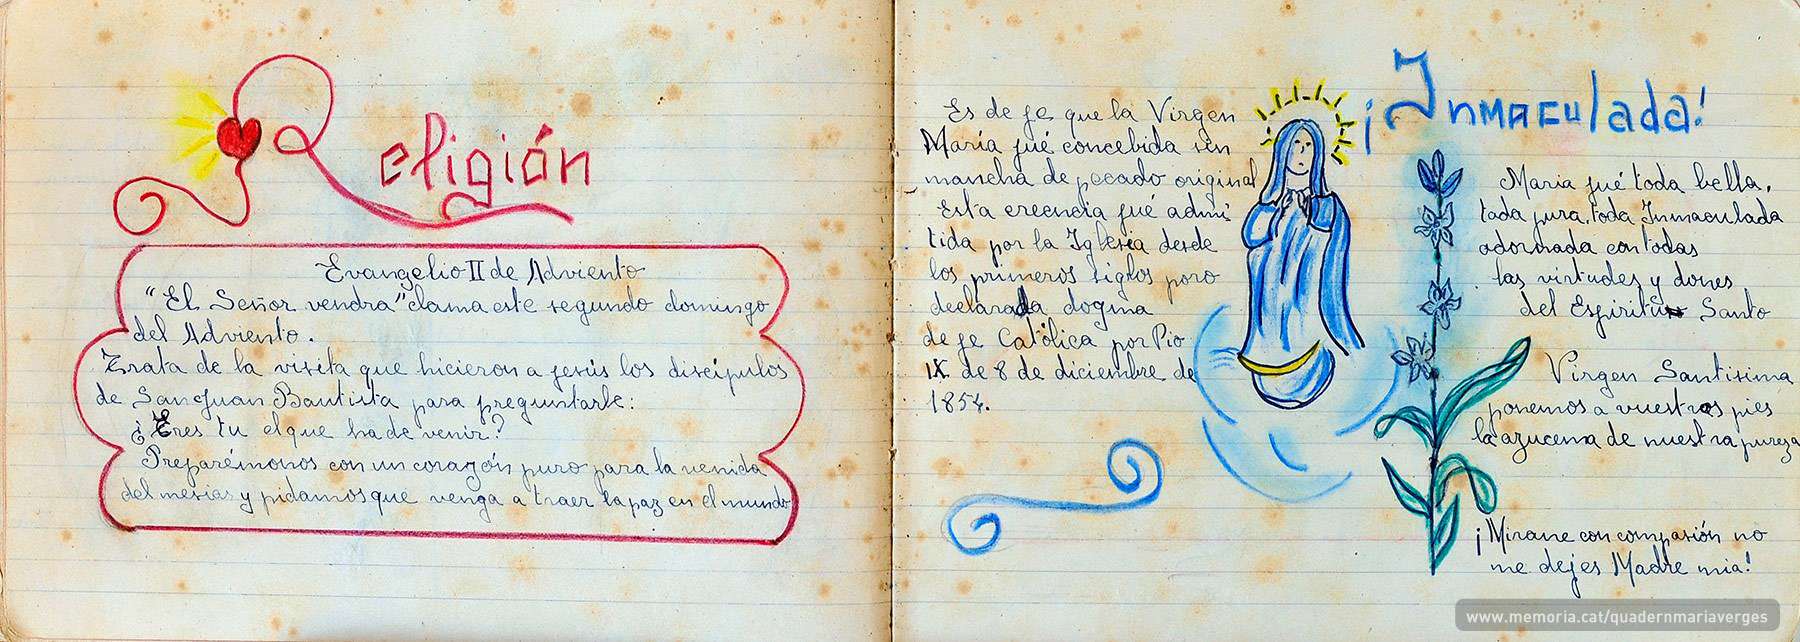 Religión
Evangelio II de Adviento
"El Señor vendra" clama este segundo domingo
del Adviento.
Trata de la visita que hicieron a jesús los discípulos
de San Juan Bautista para preguntarle:
¿Eres tu el que ha de venir?
Preparémonos con un corazón puro para la venida
del mesias y pidamos que venga a traer la paz en el mundo
Es de fe que la Virgen
María fué concebida sin
mancha de pecado original
Esta creencia fué admi
tida por la Iglesia desde
los primeros siglos pero
declarada dogma
de fe Católica por Pio
IX de 8 de diciembre de
1854.
¡Inmaculada!
Maria fué toda bella,
toda pura, toda Inmaculada
adornada con todas
las virtudes y dones
del Espiritu Santo
Virgen Santisima
ponemos a vuestros pies
la azucema de nuestra pureza
¡Mirame con compasión no
me dejes Madre mia!
www.memoria.cat/quadernmariaverges